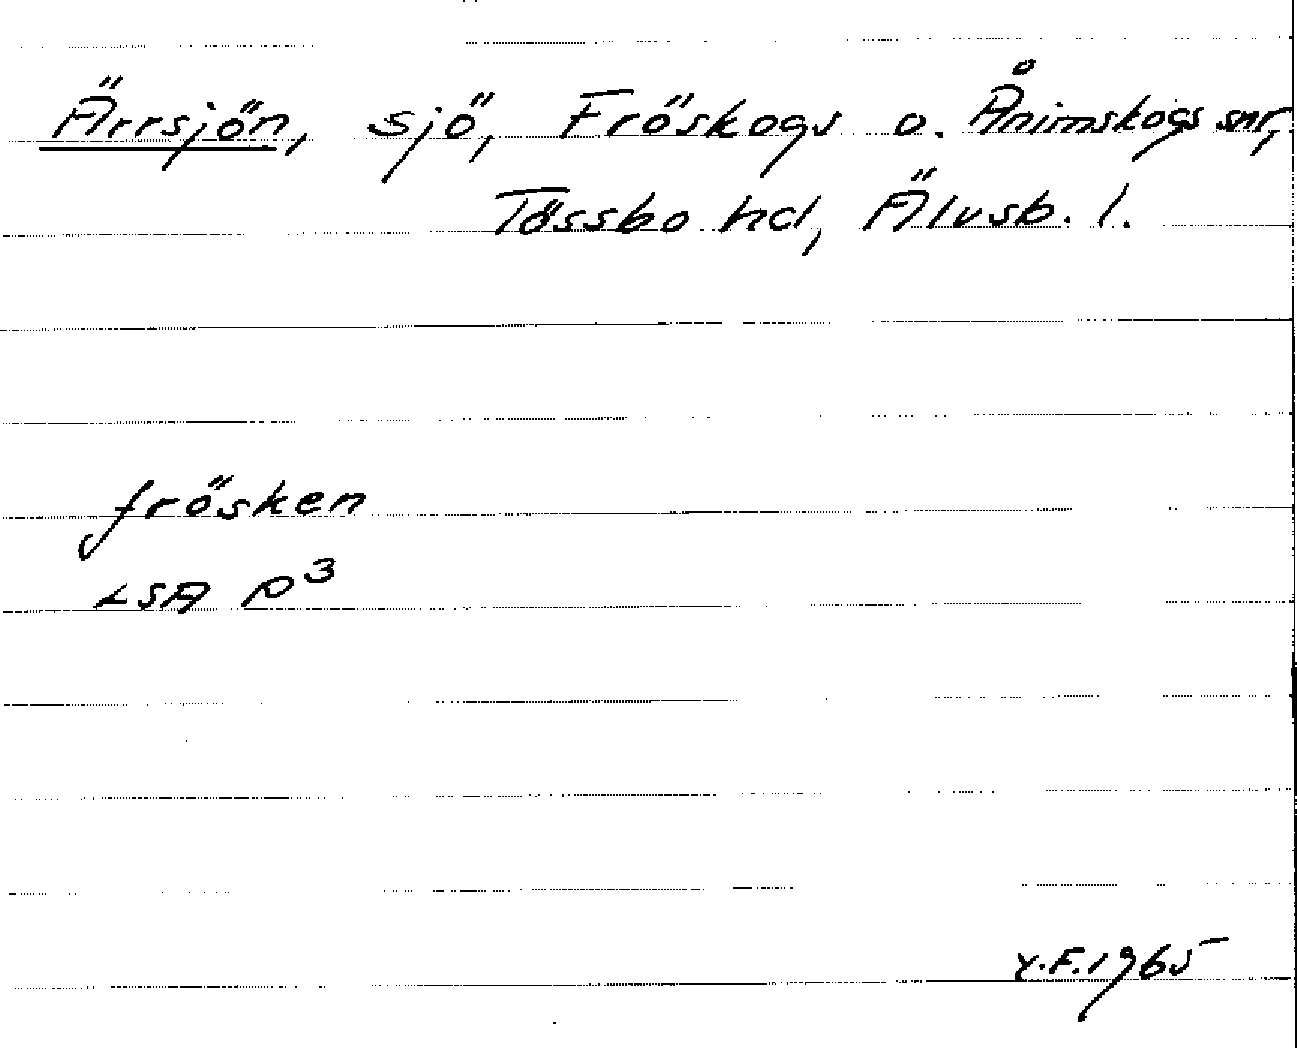 Ärrsjön, sjö, Fröskogs o. Ånimskogs snr,
Tössbo hd, Älvsb. l.
frösken
LSA P3
Y.F.1965